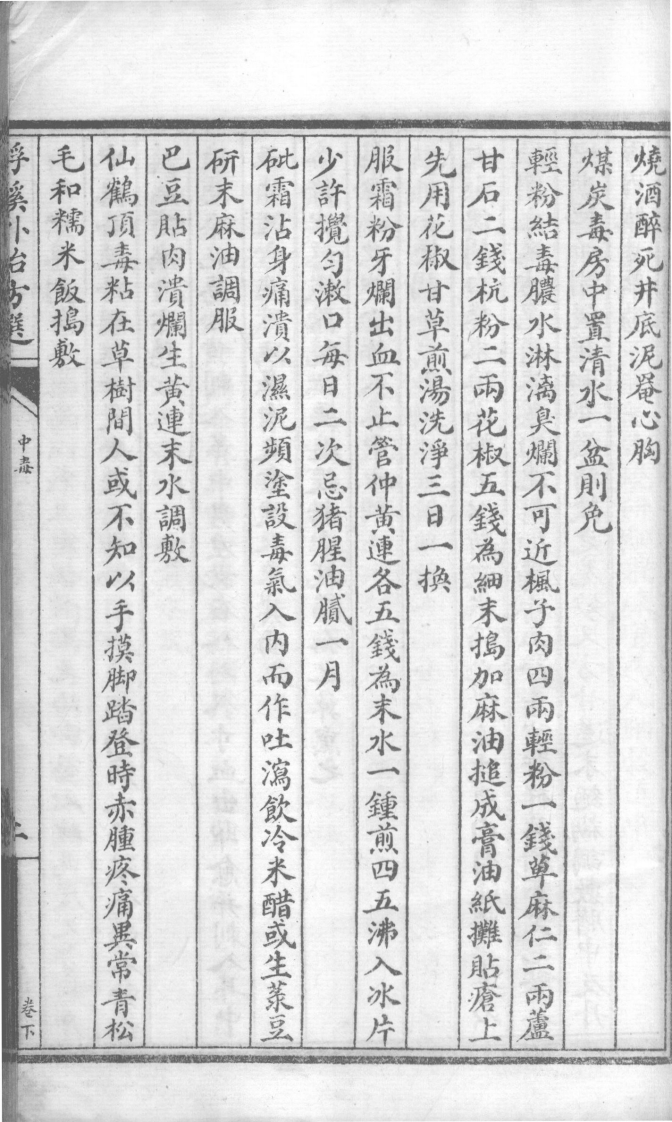 燒酒醉死井底泥罨心胸
煤炭毒房中置清水一盆則免
輕粉結毒膿水淋漓臭爛不可近楓子肉四兩輕粉一錢萆麻仁二兩蘆
甘石二錢杭粉二兩花椒五錢為細末搗加麻油搥成膏油紙攤貼瘡上
先用花椒甘草煎湯洗淨三日一換
服霜粉牙爛出血不止管仲黃連各五錢為末水一鍾煎四五沸入冰片
少許攪勻漱口每日二次忌猪腥油膩一月
砒霜沾身痛潰以濕泥頻塗設毒氣入內而作吐瀉飲冷米醋或生菉豆
研末麻油調服
巴豆貼肉潰爛生黃連末水調敷
仙鶴頂毒粘在草樹間人或不知以手摸脚踏登時赤腫疼痛異常青松
毛和糯米飯搗敷
浮溪外治方選
中毒
卷下